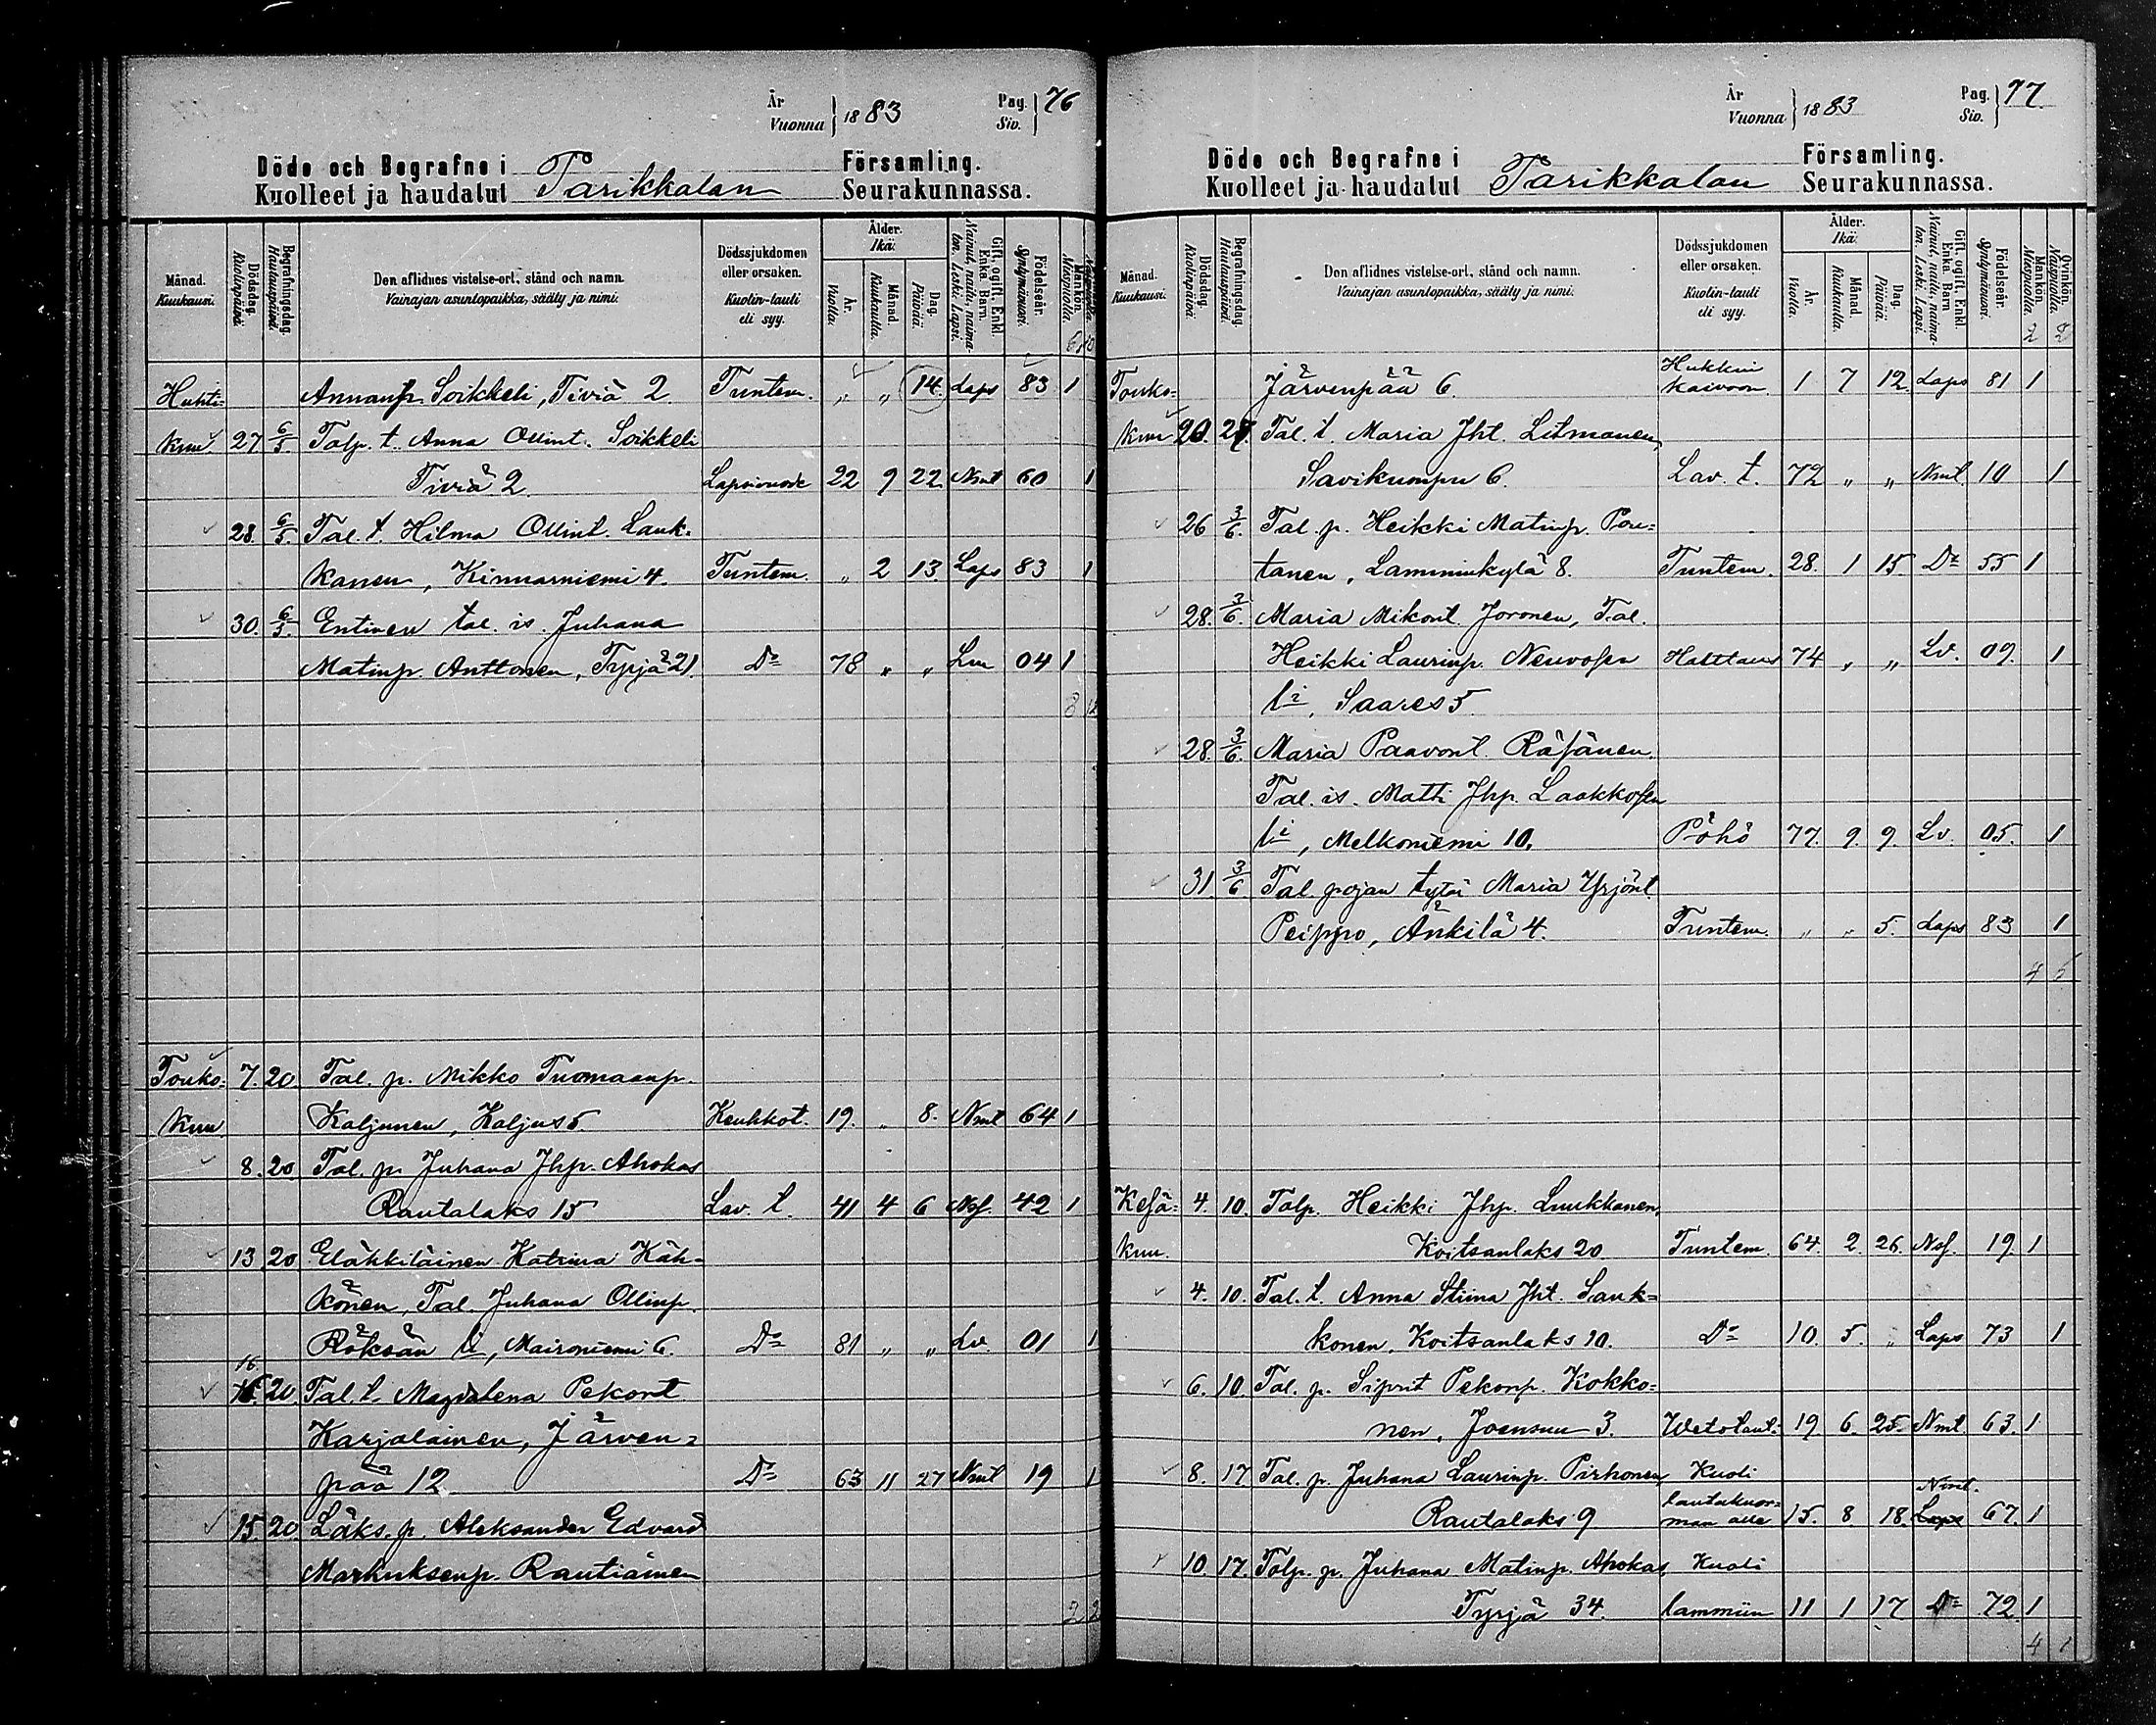 År
Vuonna } 1883 Pag. Siv. } 76
Döde och Begrafne i Parikkalan Församling.
Kuolleet ja haudatut Seurakunnassa.
Månad. Kuukausi. Dödsdag. Kuolinpäivä. Begrafningsdag. Hautauspäivä. Den aflidnes vistelse-ort, stånd och namn. Vainajan asuntopaikka, sääty ja nimi. Dödssjukdomen eller orsaken. Kuolin-tauti eli syy. Ålder. Ikä. År. Vuotta. Månad. Kuukautta. Dag. Päivää. Gift, ogift, Enkl. Enka. Barn. Nainut, naitu, naimaton. Leski. Lapsi. Födelseår. Syntymävuosi. Mankön. Miespuolia.
Huhti= Annanp. Soikkeli, Tiviä 2. Tuntem. „ „ 14. Laps 83 1
kuu. 27 6/5. Talp. t. Anna Ollint. Soikkeli
Tiviä 2 Lapsivuode 22 9 22 Nmt 60 1
28. 6/5. Tal. t. Hilma Ollint. Lauk=
kanen, Kinnarniemi 4. Tuntem. „ 2 13 Laps 83 1
30. 6/5. Entinen tal. is. Juhana
Matinp. Anttonen, Tyrjä 21. Do 78 „ „ Lm 04 1
8 12
Touko= 7. 20. Tal. p. Mikko Tuomaanp.
kuu. Kaljunen, Kaljus 5. Keuhkot. 19. „ 8. Nmt 64 1
8. 20 Tal. p. Juhana Jhp. Ahokas
Rautalaks 15 Lav. t. 41 4 6 Nof. 42 1
13 20 Eläkkiläinen Katrina Käh=
könen, Tal. Juhana Ollinp.
Röksän li, Maironiemi 6. Do 81 „ „ Lv 01 1
16 20. Tal. t. Magdalena Pekont
Karjalainen, Järven=
pää 12 Do 63 11 27 Nmt 19 1
15 20. Läks. p. Aleksander Edvard
Markuksenp. Rautiainen
2 2
År
Vuonna } 1883 Pag. Siv. } 77.
Döde och Begrafne i Parikkalan Församling.
Kuolleet ja haudatut Seurakunnassa.
Månad. Kuukausi. Dödsdag. Kuolinpäivä. Begrafningsdag. Hautauspäivä. Den aflidnes vistelse-ort, stånd och namn. Vainajan asuntopaikka, sääty ja nimi. Dödssjukdomen eller orsaken. Kuolin-tauti eli syy. Ålder. Ikä. År. Vuotta. Månad. Kuukautta. Dag. Päivää. Gift, ogift, Enkl. Enka. Barn. Nainut, naitu, naimaton. Leski. Lapsi. Födelseår. Syntymävuosi. Mankön. Miespuolia. Qvinkön. Naispuolia.
2 2
Touko= Järvenpää 6. Hukkui kaivoon 1 7 12. Laps 81 1
kuu 20. 27. Tal. t. Maria Jht. Litmanen,
Savikumpu 6. Lav. t. 72 „ „ Nmt. 10 1
26 3/6. Tal. p. Heikki Matinp. Pou=
tanen, Lamminkylä 8. Tuntem. 28. 1 15. Do 55 1
28. 3/6. Maria Mikont. Joronen, Tal.
Heikki Laurinp. Neuvosen Halttaus 74 „ „ Lv. 09. 1
li, Saares 5.
28. 3/6. Maria Paavont. Räsänen.
Tal. is. Matti Jhp. Laakkosen
li, Melkoniemi 10. Pöhö 77. 9. 9. Lv. 05. 1
31. 3/6 Tal. pojan tytär Maria Yrjönt.
Peippo, Änkilä 4. Tuntem. „ „ 5. Laps 83 1
4 5
Kesä= 4. 10. Talp. Heikki Jhp. Luukkanen,
kuu. Koitsanlaks 20 Tuntem. 64. 2. 26. Nof. 19. 1
4. 10. Tal. t. Anna Stiina Jht. Sauk=
konen, Koitsanlaks 10. Do 10. 5. „ Laps 73 1
6. 10. Tal. p. Siprit Pekonp. Kokko=
nen, Joensuu 3. Wetotaut. 19 6. 25. Nmt. 63. 1
8. 17. Tal. p. Juhana Laurinp. Pirhonen, Kuoli
Rautalaks 9 lautakuor= man alle 15. 8. 18. Laps Nmt. 67. 1
10. 17. Talp. p. Juhana Matinp. Ahokas, Kuoli
Tyrjä 34. lammiin 11 1 17 Do 72. 1
4 1